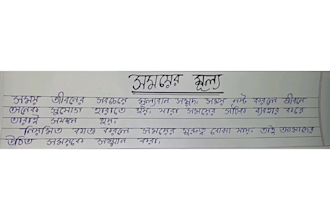 সময়ের মূল্য
সময় জীবনের সবচেয়ে মূল্যবান সম্পদ। সময় নষ্ট করলে জীবনে
অনেক সুযোগ হারাতে হয়। যারা সময়ের সঠিক ব্যবহার করে
তারাই সফল হয়।
নিয়মিত কাজ করলে সময়ের গুরুত্ব বোঝা যায়। তাই আমাদের
উচিত সময়কে সম্মান করা।